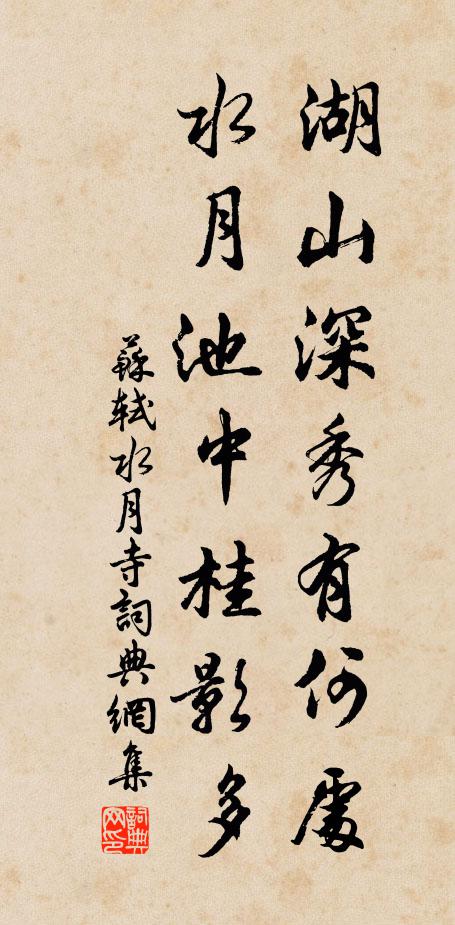 湖山深秀有何處
水月池中桂影多
蘇軾水月寺詞典網集
詞典網印